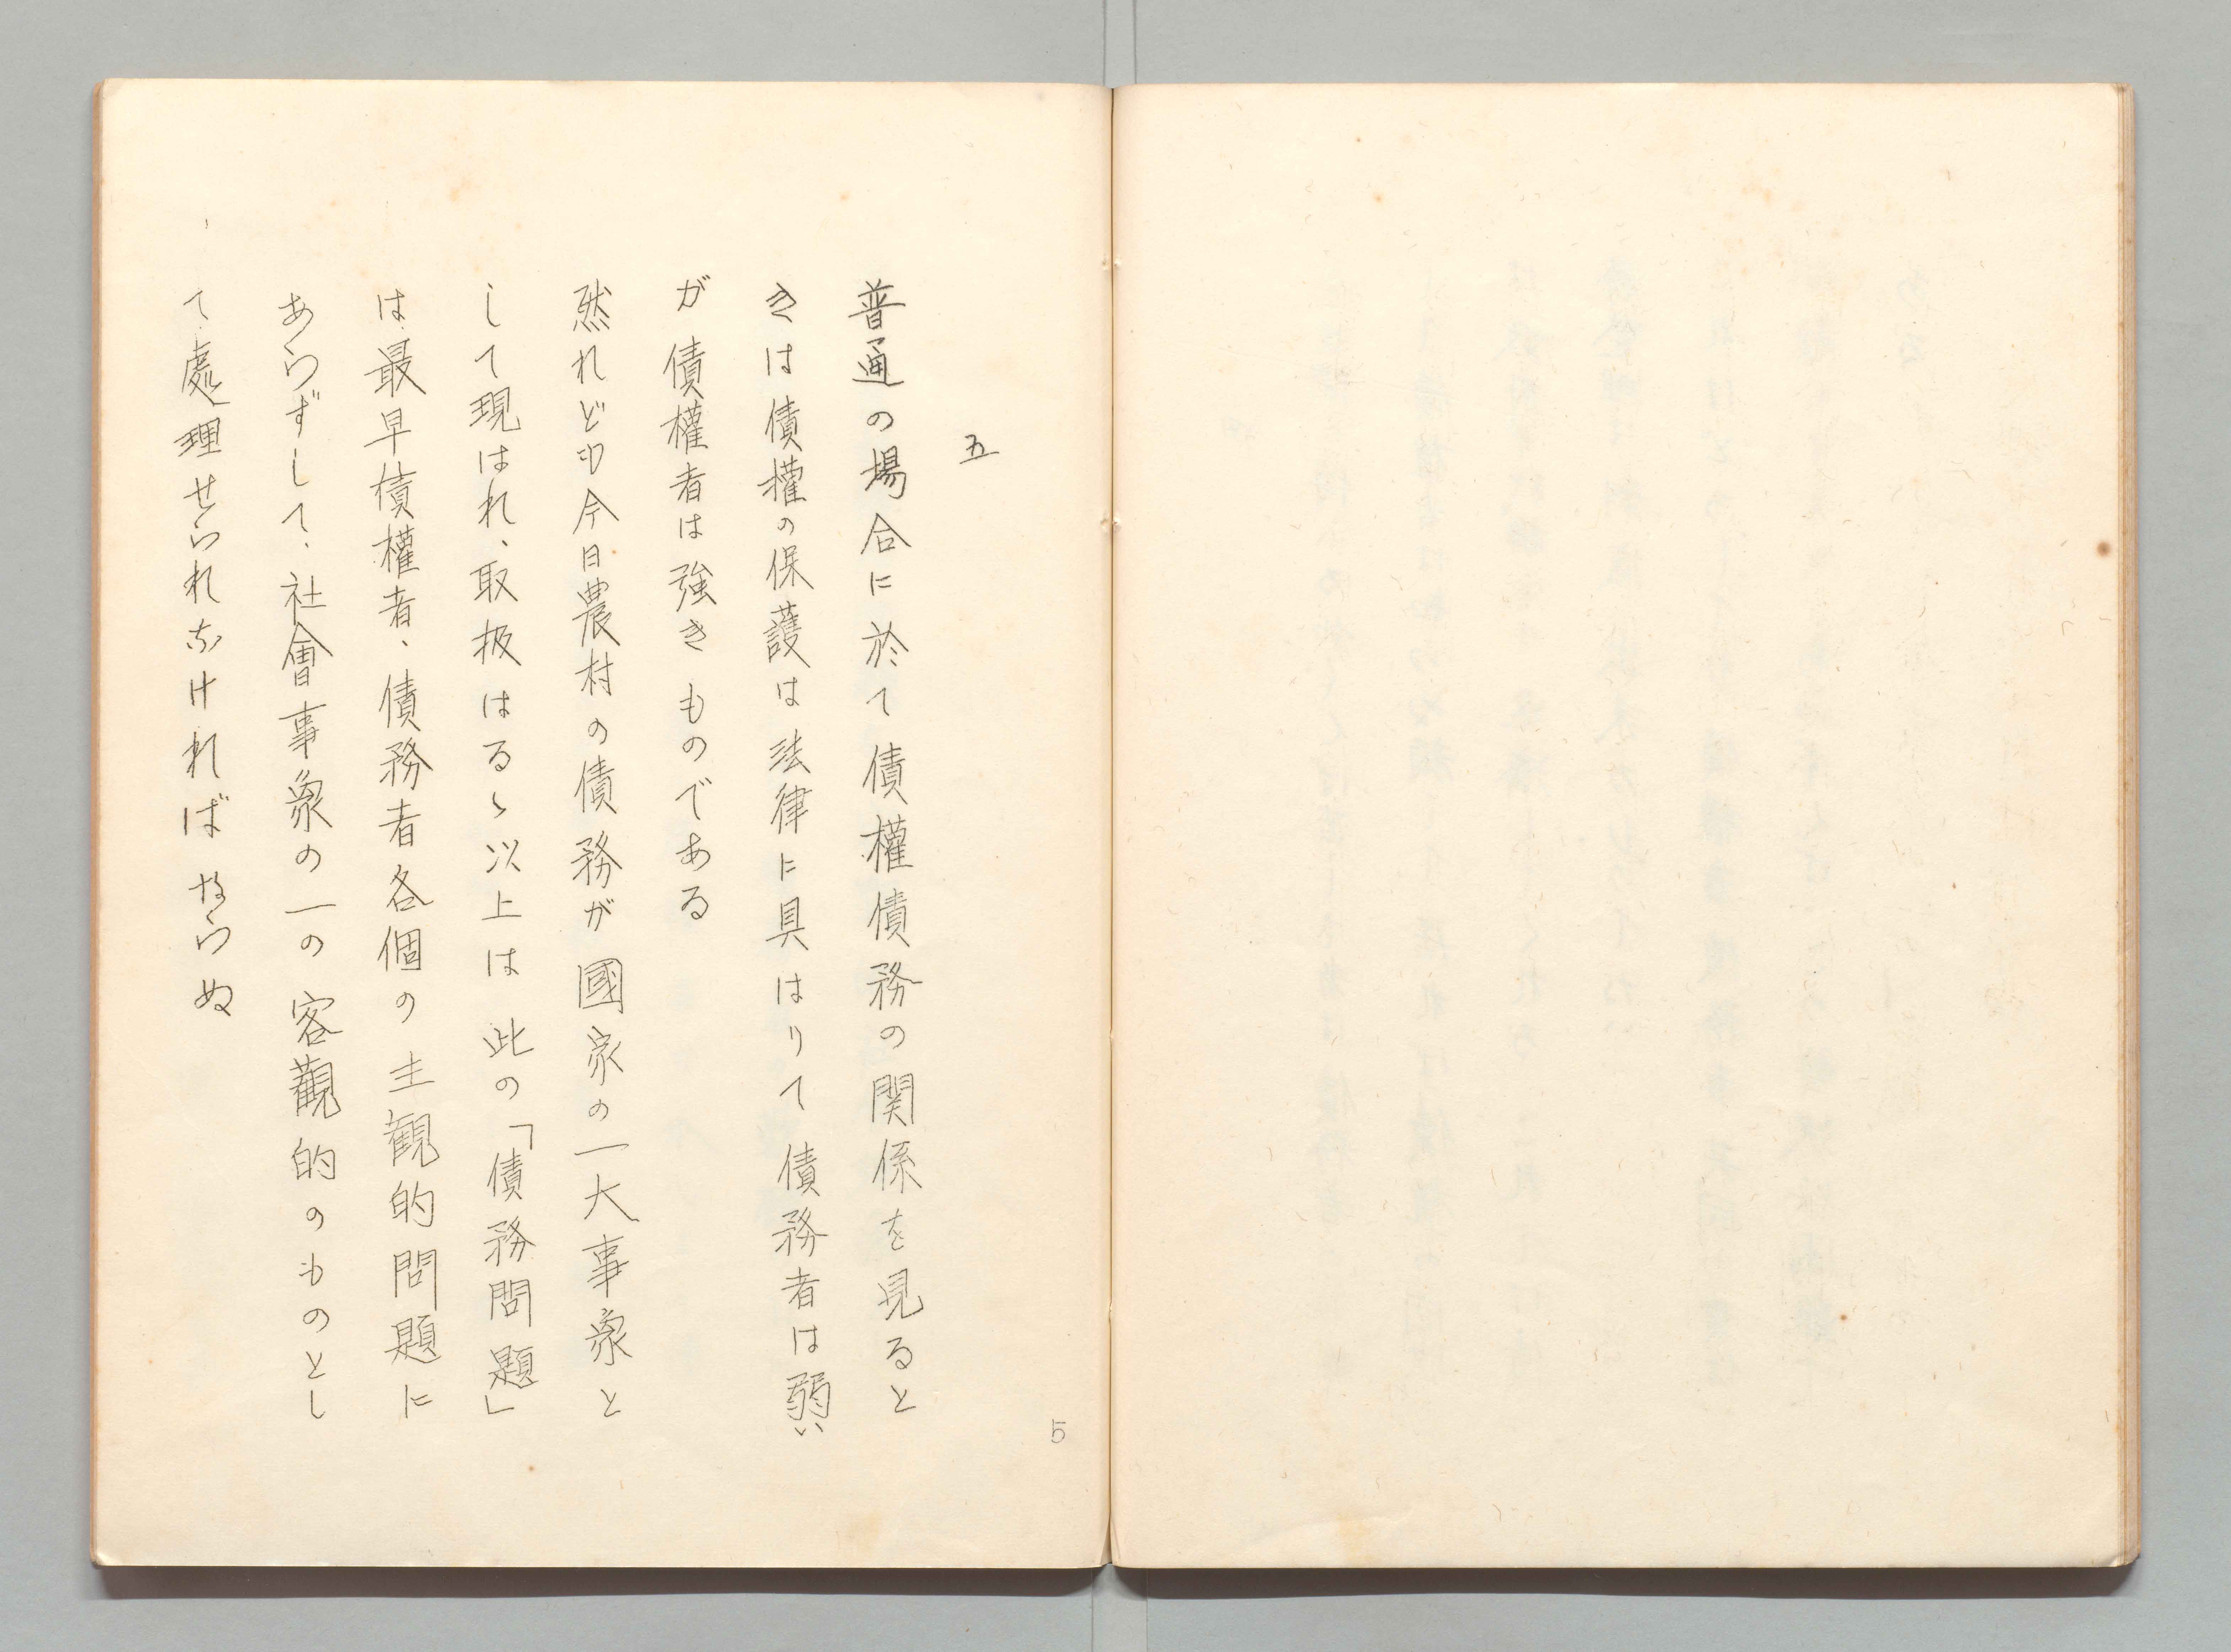 五
普通の場合に於て債權債務の関係を見ると
きは債權の保護は法律に具はりて債務者は弱い
が債權者は強きものである
然れども今日農村の債務が國家の一大事象と
して現はれ、取扱はるゝ以上は此の「債務問題」
は最早債權者、債務者各個の主観的問題に
あらずして、社會事象の一の客觀的のものとし
て處理せられなければならぬ
5